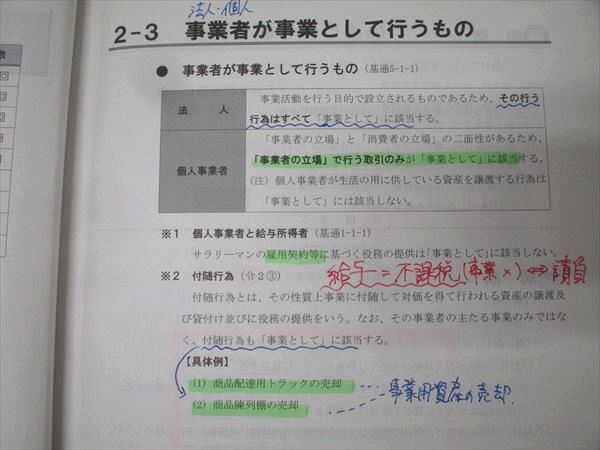 法人・個人
2-3 事業者が事業として行うもの
● 事業者が事業として行うもの（基通5-1-1）
法 人
事業活動を行う目的で設立されるものであるため、その行う
行為はすべて「事業として」に該当する。
個人事業者
「事業者の立場」と「消費者の立場」の二面性があるため、
「事業者の立場」で行う取引のみが「事業として」に該当する。
（注）個人事業者が生活の用に供している資産を譲渡する行為は
「事業として」には該当しない。
※1 個人事業者と給与所得者（基通1-1-1）
サラリーマンの雇用契約等に基づく役務の提供は「事業として」に該当しない。
給与＝不課税（事業×）⇔請負
※2 付随行為（令2③）
付随行為とは、その性質上事業に付随して対価を得て行われる資産の譲渡及
び貸付け並びに役務の提供をいう。なお、その事業者の主たる事業のみではな
く、付随行為も「事業として」に該当する。
【具体例】
(1) 商品配達用トラックの売却
(2) 商品陳列棚の売却
事業用資産の売却.
数
回
回
回
回
回